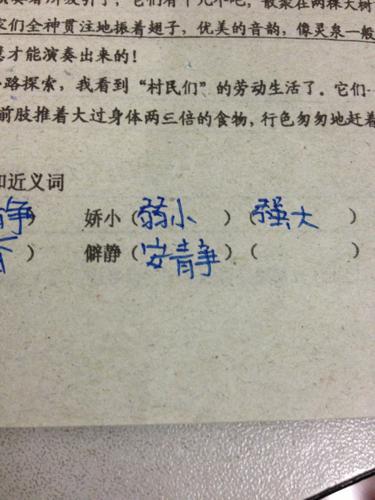 它们有十几不吧，散聚在两棵大树
它们全神贯注地振着翅子，优美的音韵，像灵泉一般
才能演奏出来的！
路探索，我看到“村民们”的劳动生活了。它们一
前肢推着大过身体两三倍的食物，行色匆匆地赶着
和近义词
静） 娇小（弱小）（强大）
） 僻静（安静）（ ）